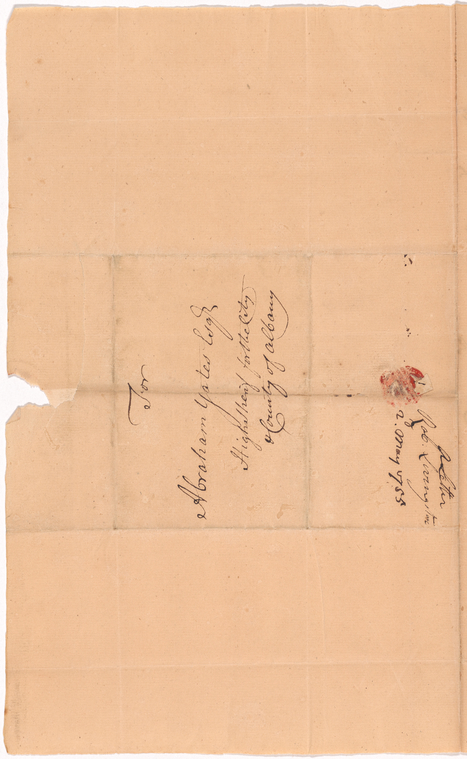 For
Abraham Yates Esqr
High Sherif for the City
& County of Albany
A Letter
Rob. Livingston
2. May 1755